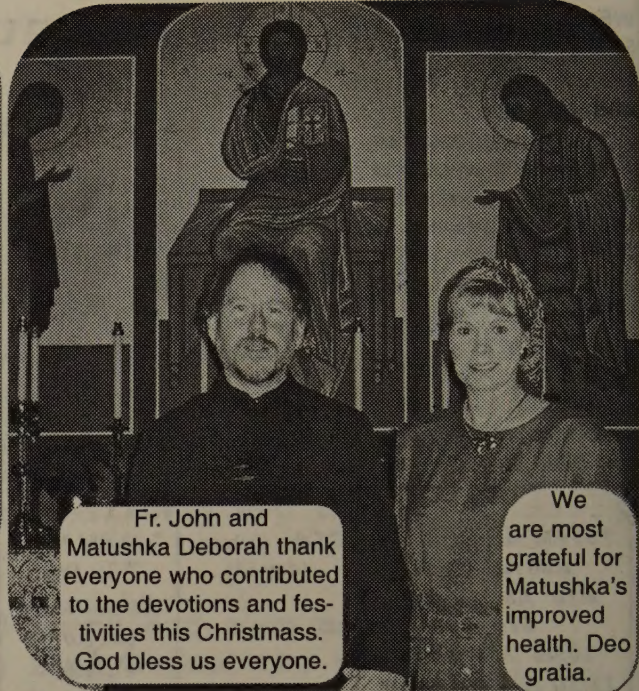 Fr. John and
Matushka Deborah thank
everyone who contributed
to the devotions and fes-
tivities this Christmass.
God bless us everyone.
We
are most
grateful for
Matushka's
improved
health. Deo
gratia.